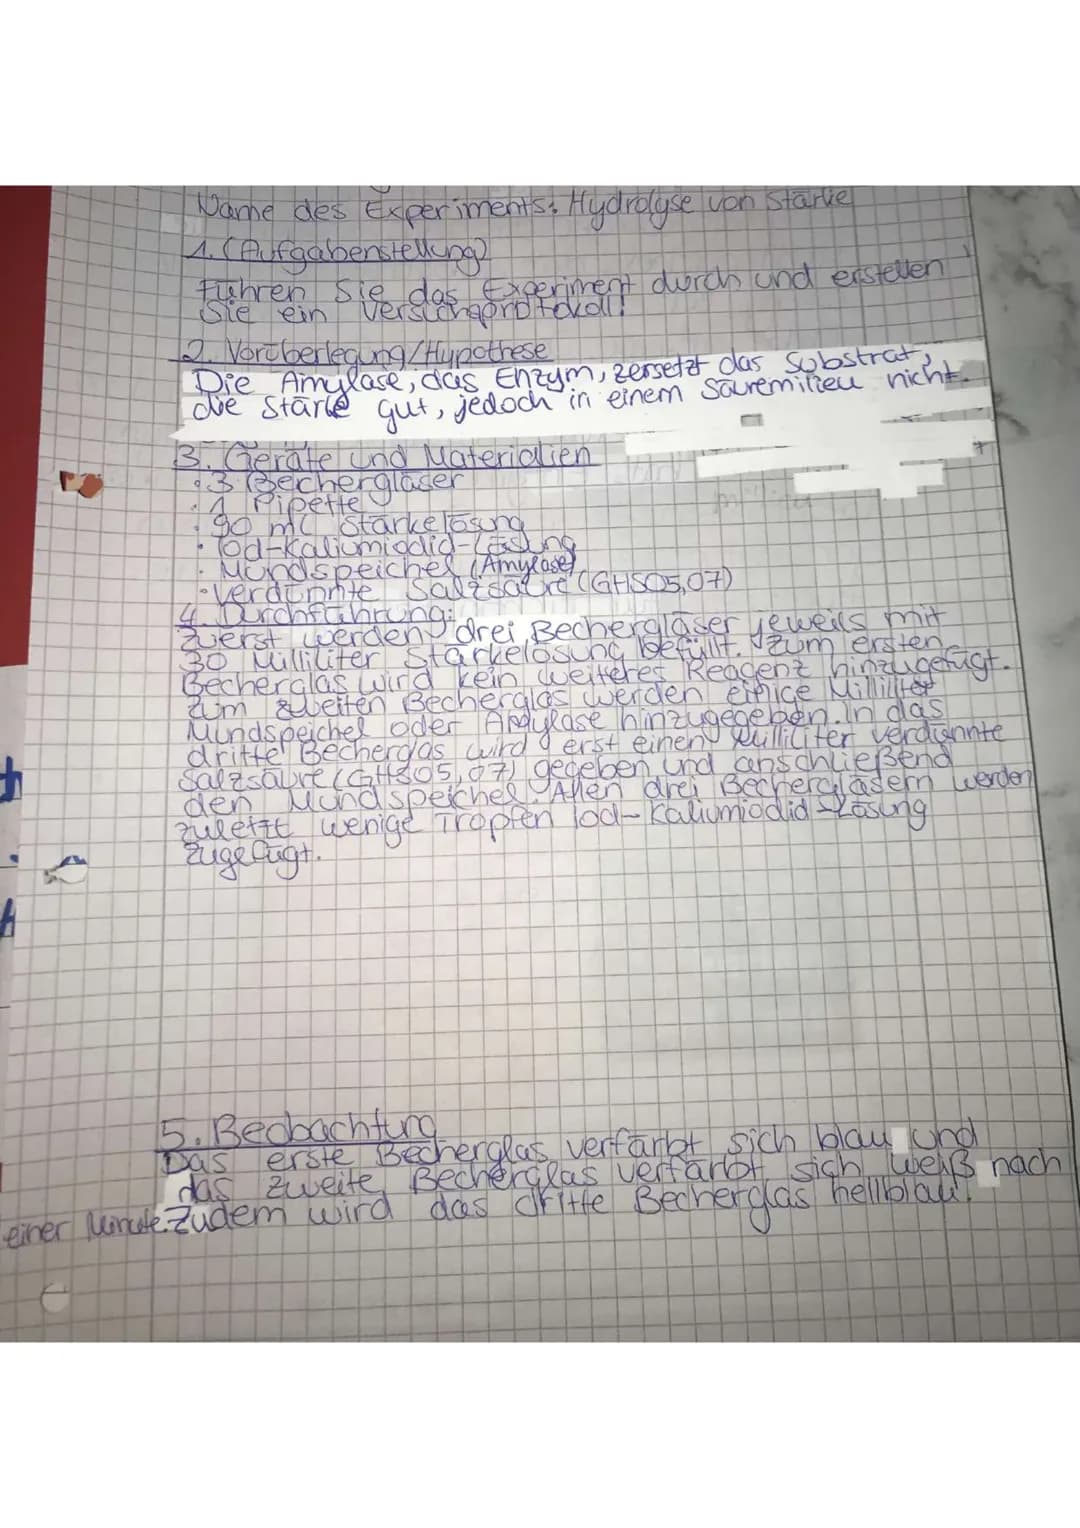 Name des Experiments: Hydrolyse von Stärke
1. (Aufgabenstellung)
Führen Sie das Experiment durch und erstellen
Sie ein Versuchsprotokoll!
2. Vorüberlegung/Hypothese
Die Amylase, das Enzym, zersetzt das Substrat,
die Stärke gut, jedoch in einem Säuremilieu nicht.
3. Geräte und Materialien
• 3 Bechergläser
• 1 Pipette
• 90 ml Stärkelösung
• Iod-Kaliumiodid-Lösung
• Mundspeichel (Amylase)
• Verdünnte Salzsäure (GHS05,07)
4. Durchführung:
Zuerst werden drei Bechergläser jeweils mit
30 Milliliter Stärkelösung befüllt. Zum ersten
Becherglas wird kein weiteres Reagenz hinzugefügt.
Zum zweiten Becherglas werden einige Milliliter
Mundspeichel oder Amylase hinzugegeben. In das
dritte Becherglas wird erst einen Milliliter verdünnte
Salzsäure (GHS05,07) gegeben und anschließend
den Mundspeichel. Allen drei Bechergläsern werden
zuletzt wenige Tropfen Iod-Kaliumiodid-Lösung
zugefügt.
5. Beobachtung
Das erste Becherglas verfärbt sich blau und
das zweite Becherglas verfärbt sich weiß nach
einer Minute. Zudem wird das dritte Becherglas hellblau.